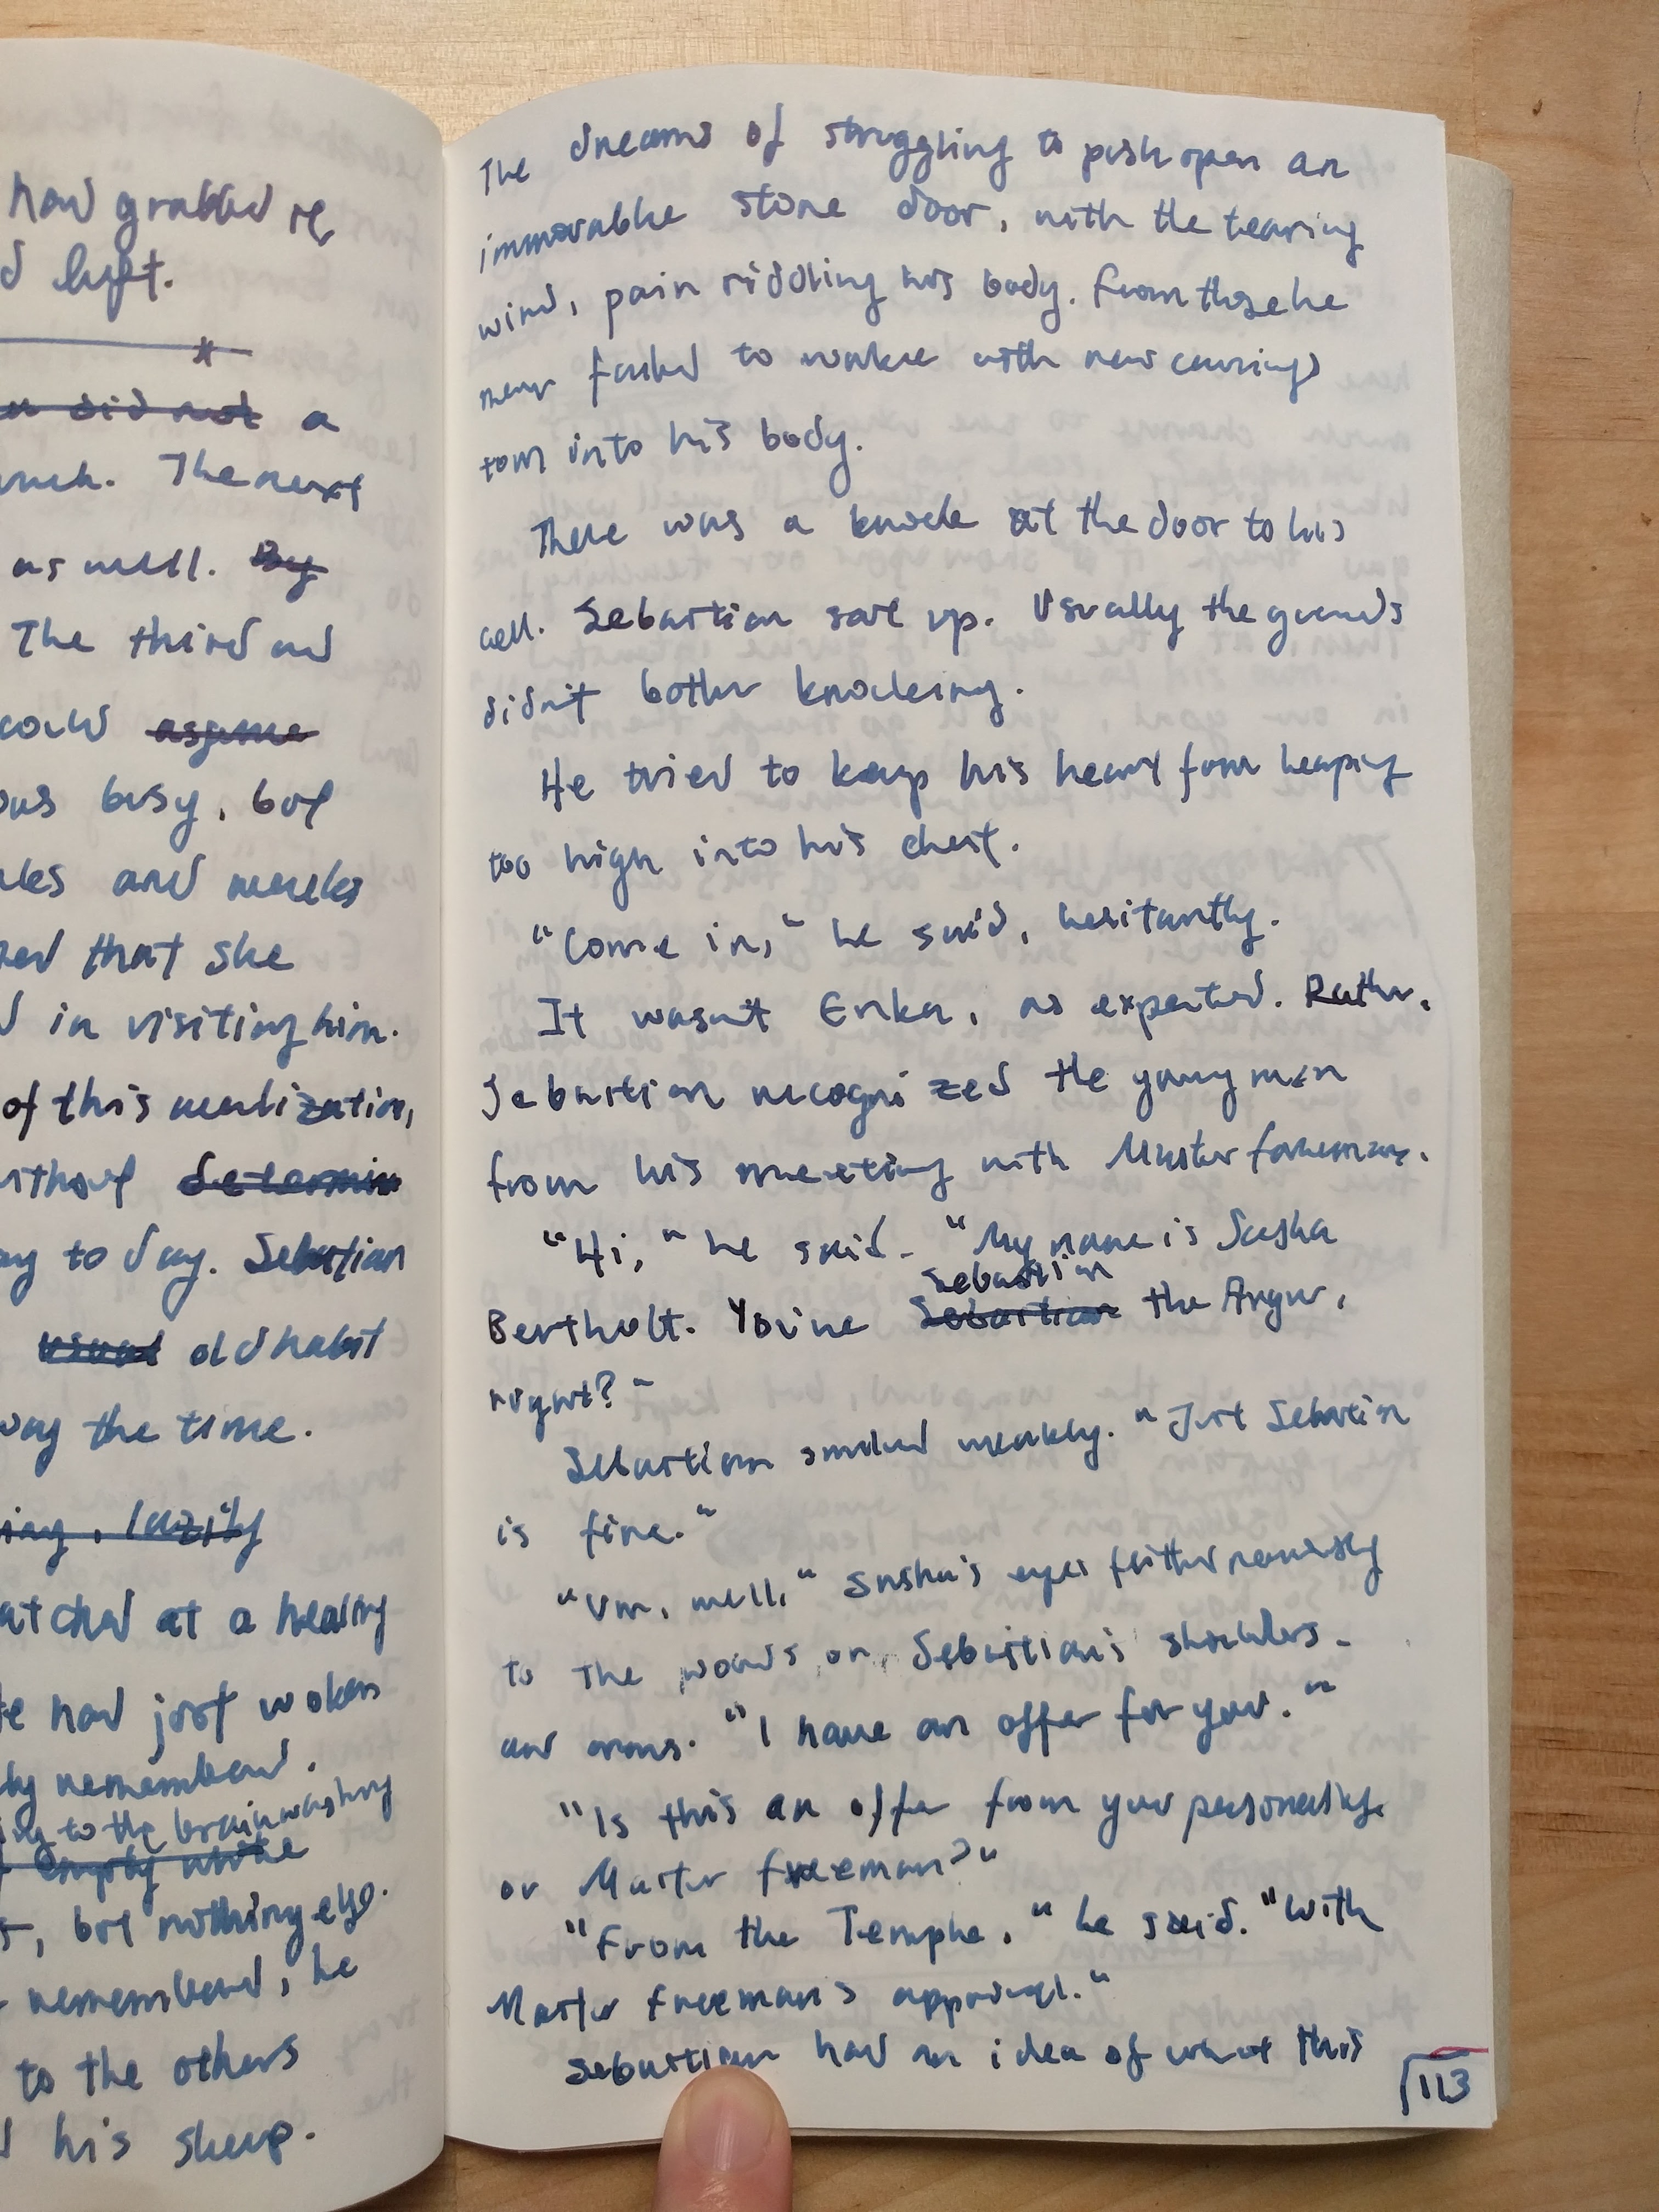 had grabbed
d left.
*
did not a
The next
as well. By
The third
could assume
busy, but
and weeks
that she
d in visiting him.
of this realization,
determin
to day. Sebastian
usual old habit
the time.
ing, lazily
at a healing
had just woken
remembered.
to the brainwashing
empty white
, but nothing else.
remembered, he
to the others
his sleep.
The dreams of struggling to push open an
immovable stone door, with the tearing
wind, pain riddling his body. From those he
never failed to wake with new carvings
torn into his body.
There was a knock at the door to his
cell. Sebastian sat up. Usually the guards
didn't bother knocking.
He tried to keep his heart from leaping
too high into his chest.
"Come in," he said, hesitantly.
It wasn't Erika, as expected. Rather,
Sebastian recognized the young man
from his meeting with Master Freeman.
"Hi," he said. "My name is Sasha
Sebastian
Berthold. You're Sebastian the Argur,
right?"
Sebastian smiled weakly. "Just Sebastian
is fine."
"Um, well," Sasha's eyes flitted nervously
to the words on Sebastian's shoulders
and arms. "I have an offer for you."
"Is this an offer from you personally,
or Master Freeman?"
"From the Temple," he said. "With
Master Freeman's approval."
Sebastian had an idea of what this
113